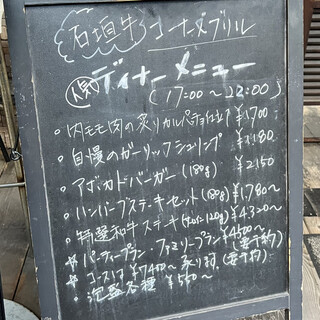 石垣牛 コーナーズグリル
人気 ディナーメニュー
(17:00〜22:00)
○ 内モモ肉の炙りカルパッチョ仕立て ¥1,700
○ 自慢のガーリックシュリンプ ¥1,180
○ アボカドバーガー (180g) ¥2,150
○ ハンバーグステーキセット (180g) ¥1,780〜
○ 特選和牛ステーキ (120g) ¥4,320〜
☆ パーティープラン・ファミリープラン ¥4500〜 (要予約)
☆ コース ¥7400〜 (要予約)
○ 泡盛各種 ¥500〜